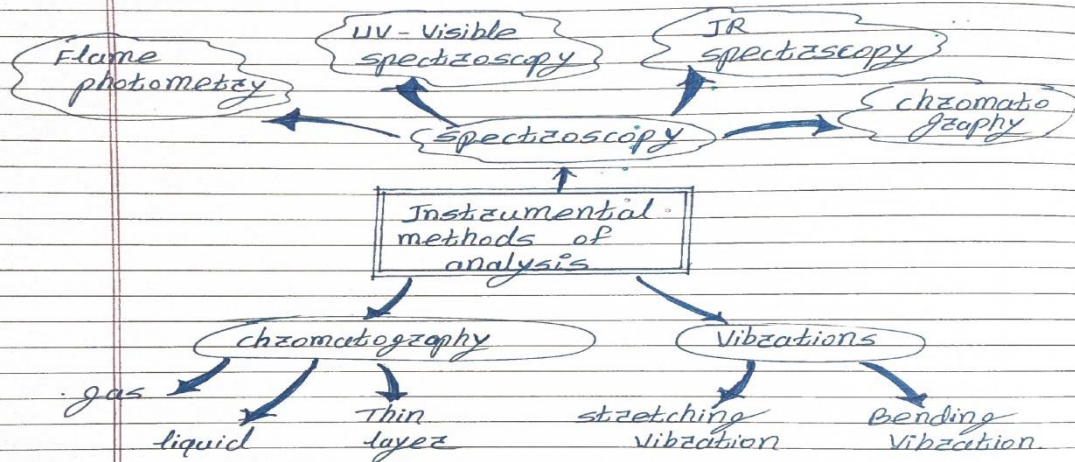 Flame
photometry
UV-Visible
spectroscopy
IR
spectrscopy
chromato
graphy
spectroscopy
Instrumental
methods of
analysis
chromatography
Vibrations
gas
liquid
Thin
layer
stretching
vibration
Bending
Vibration.